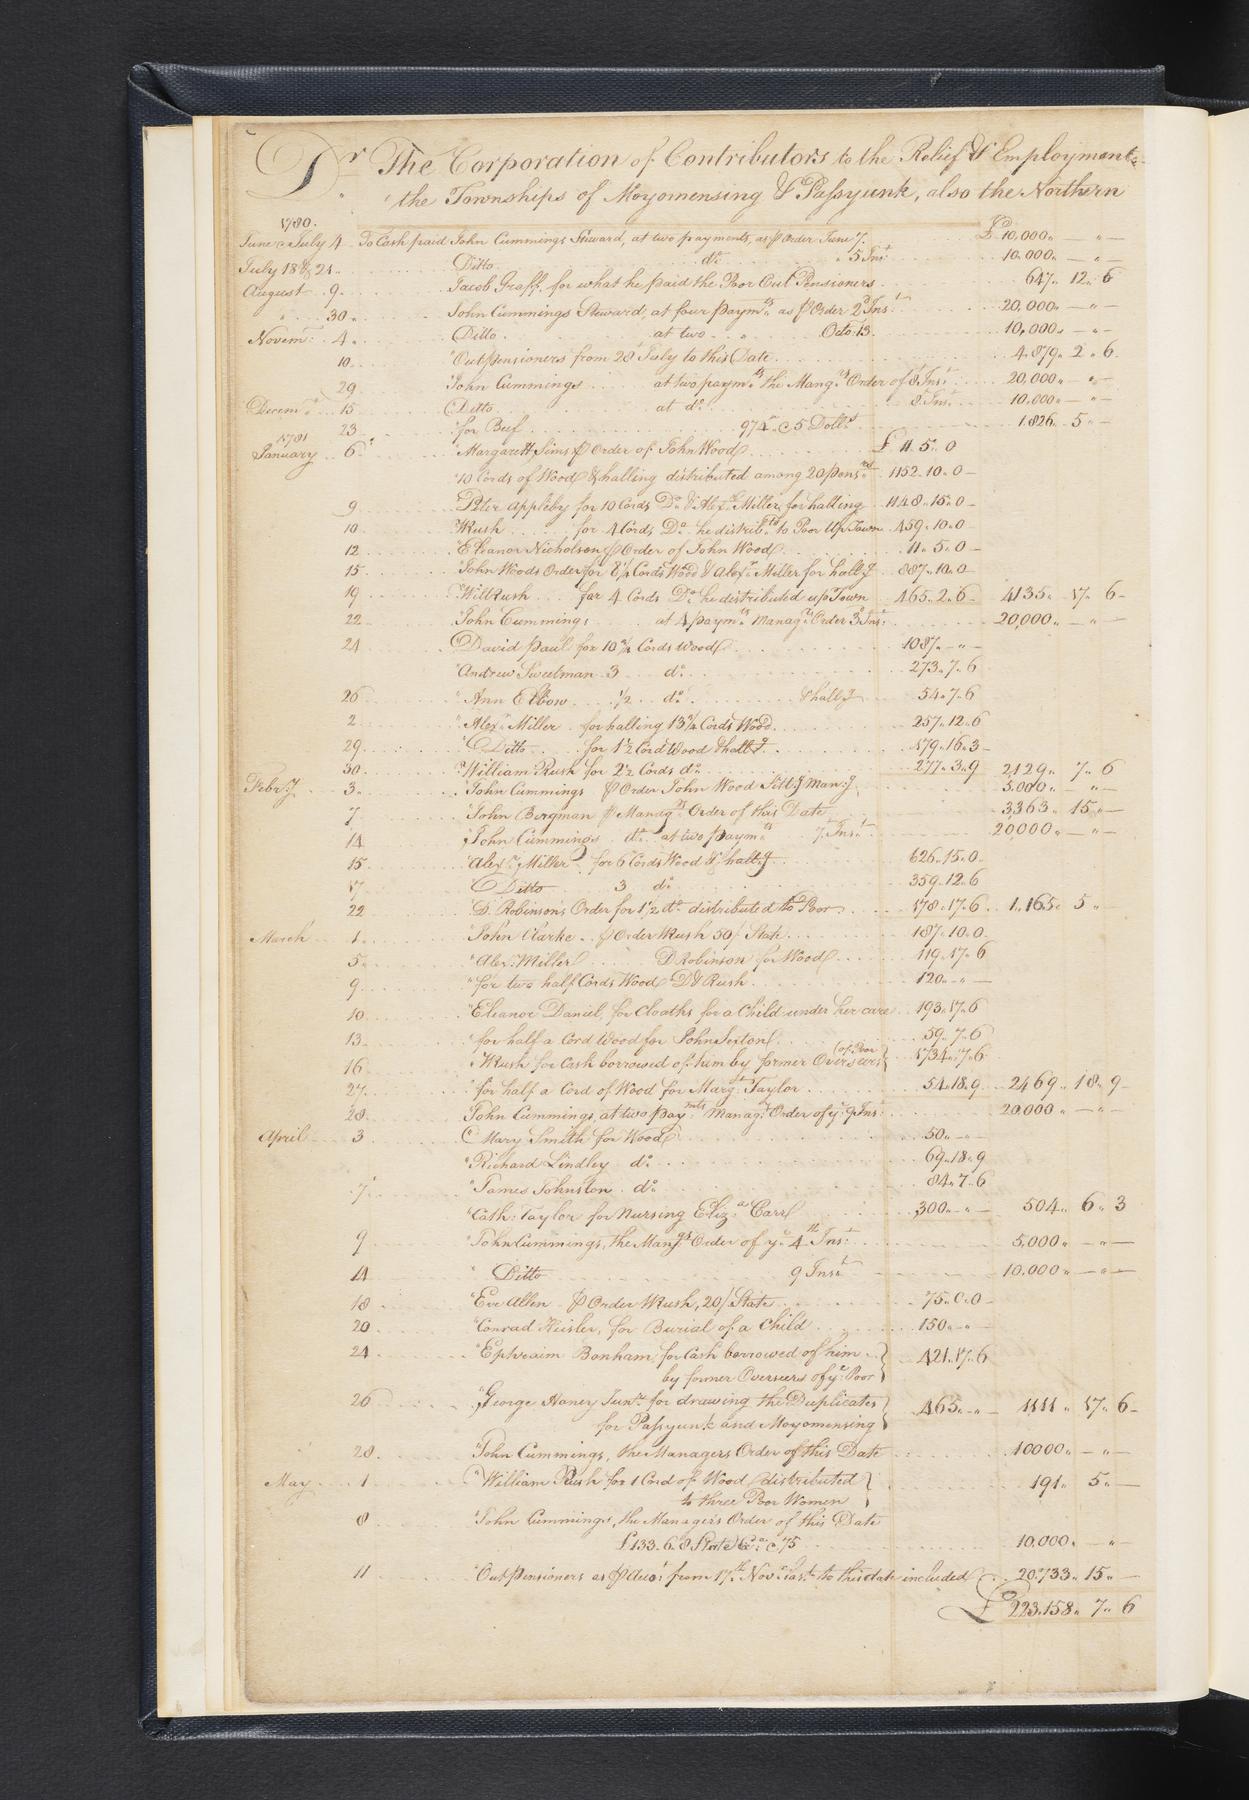 Dr The Corporation of Contributors to the Relief & Employment
the Townships of Moyomensing & Passyunk, also the Northern
1780.
June & July 4 To Cash paid John Cummings Steward, at two payments, as ℘ Order June 7. £ 10,000 „ — „ —
July 18 & 21 „ Ditto do „ 5 Inst 10.000 „ — „ —
August 9. Jacob Graff for what he paid the Poor Out Pensioners 647 „ 12 „ 6
„ 30 „ John Cummings Steward, at four paymts as ℘ Order 2d Inst 20,000 „ — „ —
Novemr 4 „ Ditto at two „ Octo 13. 10,000 „ — „ —
10 „ Outpensioners from 28 July to this Date 4.879 „ 2 „ 6
29 John Cummings at two paymts the Mangrs Order of 8 Inst 20,000 „ — „ —
Decemr 15 Ditto at do 8 Inst 10.000 „ — „ —
23 for Beef 974 @ 5 Dollrs 1.826 „ 5 „ —
1781
January 6 Margarett Sims ℘ Order of John Wood £ 11 „ 5 „ 0
10 Cords of Wood & halling distributed among 20 Pensrs 1152 „ 10 „ 0 —
9 Peter Appleby for 10 Cords Do & Alexr Miller for halling 1148 „ 15 „ 0 —
10 WRush for 4 Cords Do he distribted to Poor Up Town 459 „ 10 „ 0
12 Eleanor Nicholson ℘ Order of John Wood 11 „ 5 „ 0 —
15 John Woods Order for 8¼ Cords Wood & Alexr Miller for hallg 887 „ 10 „ 0
19 Will Rush for 4 Cords Do he distributed up Town 465 „ 2 „ 6 4135 „ 17 „ 6 —
22 John Cummings at 4 paymts Managrs Order 3d Inst 20,000 „ — „ —
24 David Paul for 10¾ Cords Wood 1087 „ — „ —
Andrew Sweetman 3 do 273 „ 7 „ 6
26 Ann Elbow ½ do & hallg 54 „ 7 „ 6
2 Alexr Miller for halling 13¾ Cords Wood 257 „ 12 „ 6
29 Ditto for 1½ Cord Wood & hallg 179 „ 16 „ 3 —
30 William Rush for 2½ Cords do 277 „ 3 „ 9 2,129 „ 7 „ 6
Febry 3 John Cummings ℘ Order John Wood Sittg Mang 5.000 „ — „ —
7 John Bergman ℘ Managrs Order of this Date 3,363 „ 15 „ —
14 John Cummings do at two paymts 7 Inst 20000 „ — „ —
15 Alexr Miller for 6 Cords Wood & hallg 626 „ 15 „ 0
17 Ditto 3 do 359 „ 12 „ 6
22 D. Robinson's Order for 1½ do distributed to Poor 178 „ 17 „ 6 1.165 „ 5 „
March 1 John Clarke ℘ Order WRush 50/ State 187 „ 10 „ 0
5 Alexr Miller D Robinson for Wood 119 „ 17 „ 6
9 for two half Cords Wood D & Rush 120 „ — „ —
10 Eleanor Daniel, for Cloaths for a Child under her care 193 „ 17 „ 6
13 for half a Cord Wood for John Sexton 59 „ 7 „ 6
16 WRush for Cash borrowed of him by former Overseers (of Poor 1734 „ 7 „ 6
27 for half a Cord of Wood for Margt Taylor 54 „ 18 „ 9 2469 „ 18 „ 9 —
28 John Cummings, at two paymts Managrs Order of ye 9 Inst 20,000 „ — „ —
April 3 Mary Smith for Wood 50 „ — „
Richard Lindley do 69 „ 18 „ 9
7 James Johnston do 84 „ 7 „ 6
Cath: Taylor for Nursing Eliza Carrl 300 „ „ — 504 „ 6 „ 3
9 John Cummings, the Mangrs Order of ye 4th Inst 5,000 „ — „ —
14 Ditto 9 Inst 10.000 „ — „ —
18 Eve Allen ℘ Order WRush, 20/ State 75 „ 0 „ 0 —
20 Conrad Heisler, for Burial of a Child 150 „ — „
24 Ephraim Bonham, for Cash borrowed of him 421 „ 17 „ 6
by former Overseers of ye Poor
26 George Haney Junr for drawing the Duplicates 465 „ — „ — 1111 „ 17 „ 6 —
for Passyunk and Moyomensing
28 John Cummings, the Managers Order of this Date 10000 „ — „ —
May 1 William Rush for 1 Cord of Wood distributed 191 „ 5 „ —
to three Poor Women
8 John Cummings, the Managers Order of this Date
£133 „ 6 „ 8 State @ 75 10.000 „ — „ —
11 Outpensioners as ℘ Acct from 17th Novr last to this date included 20.733 „ 15 „ —
£ 223.158 „ 7 „ 6